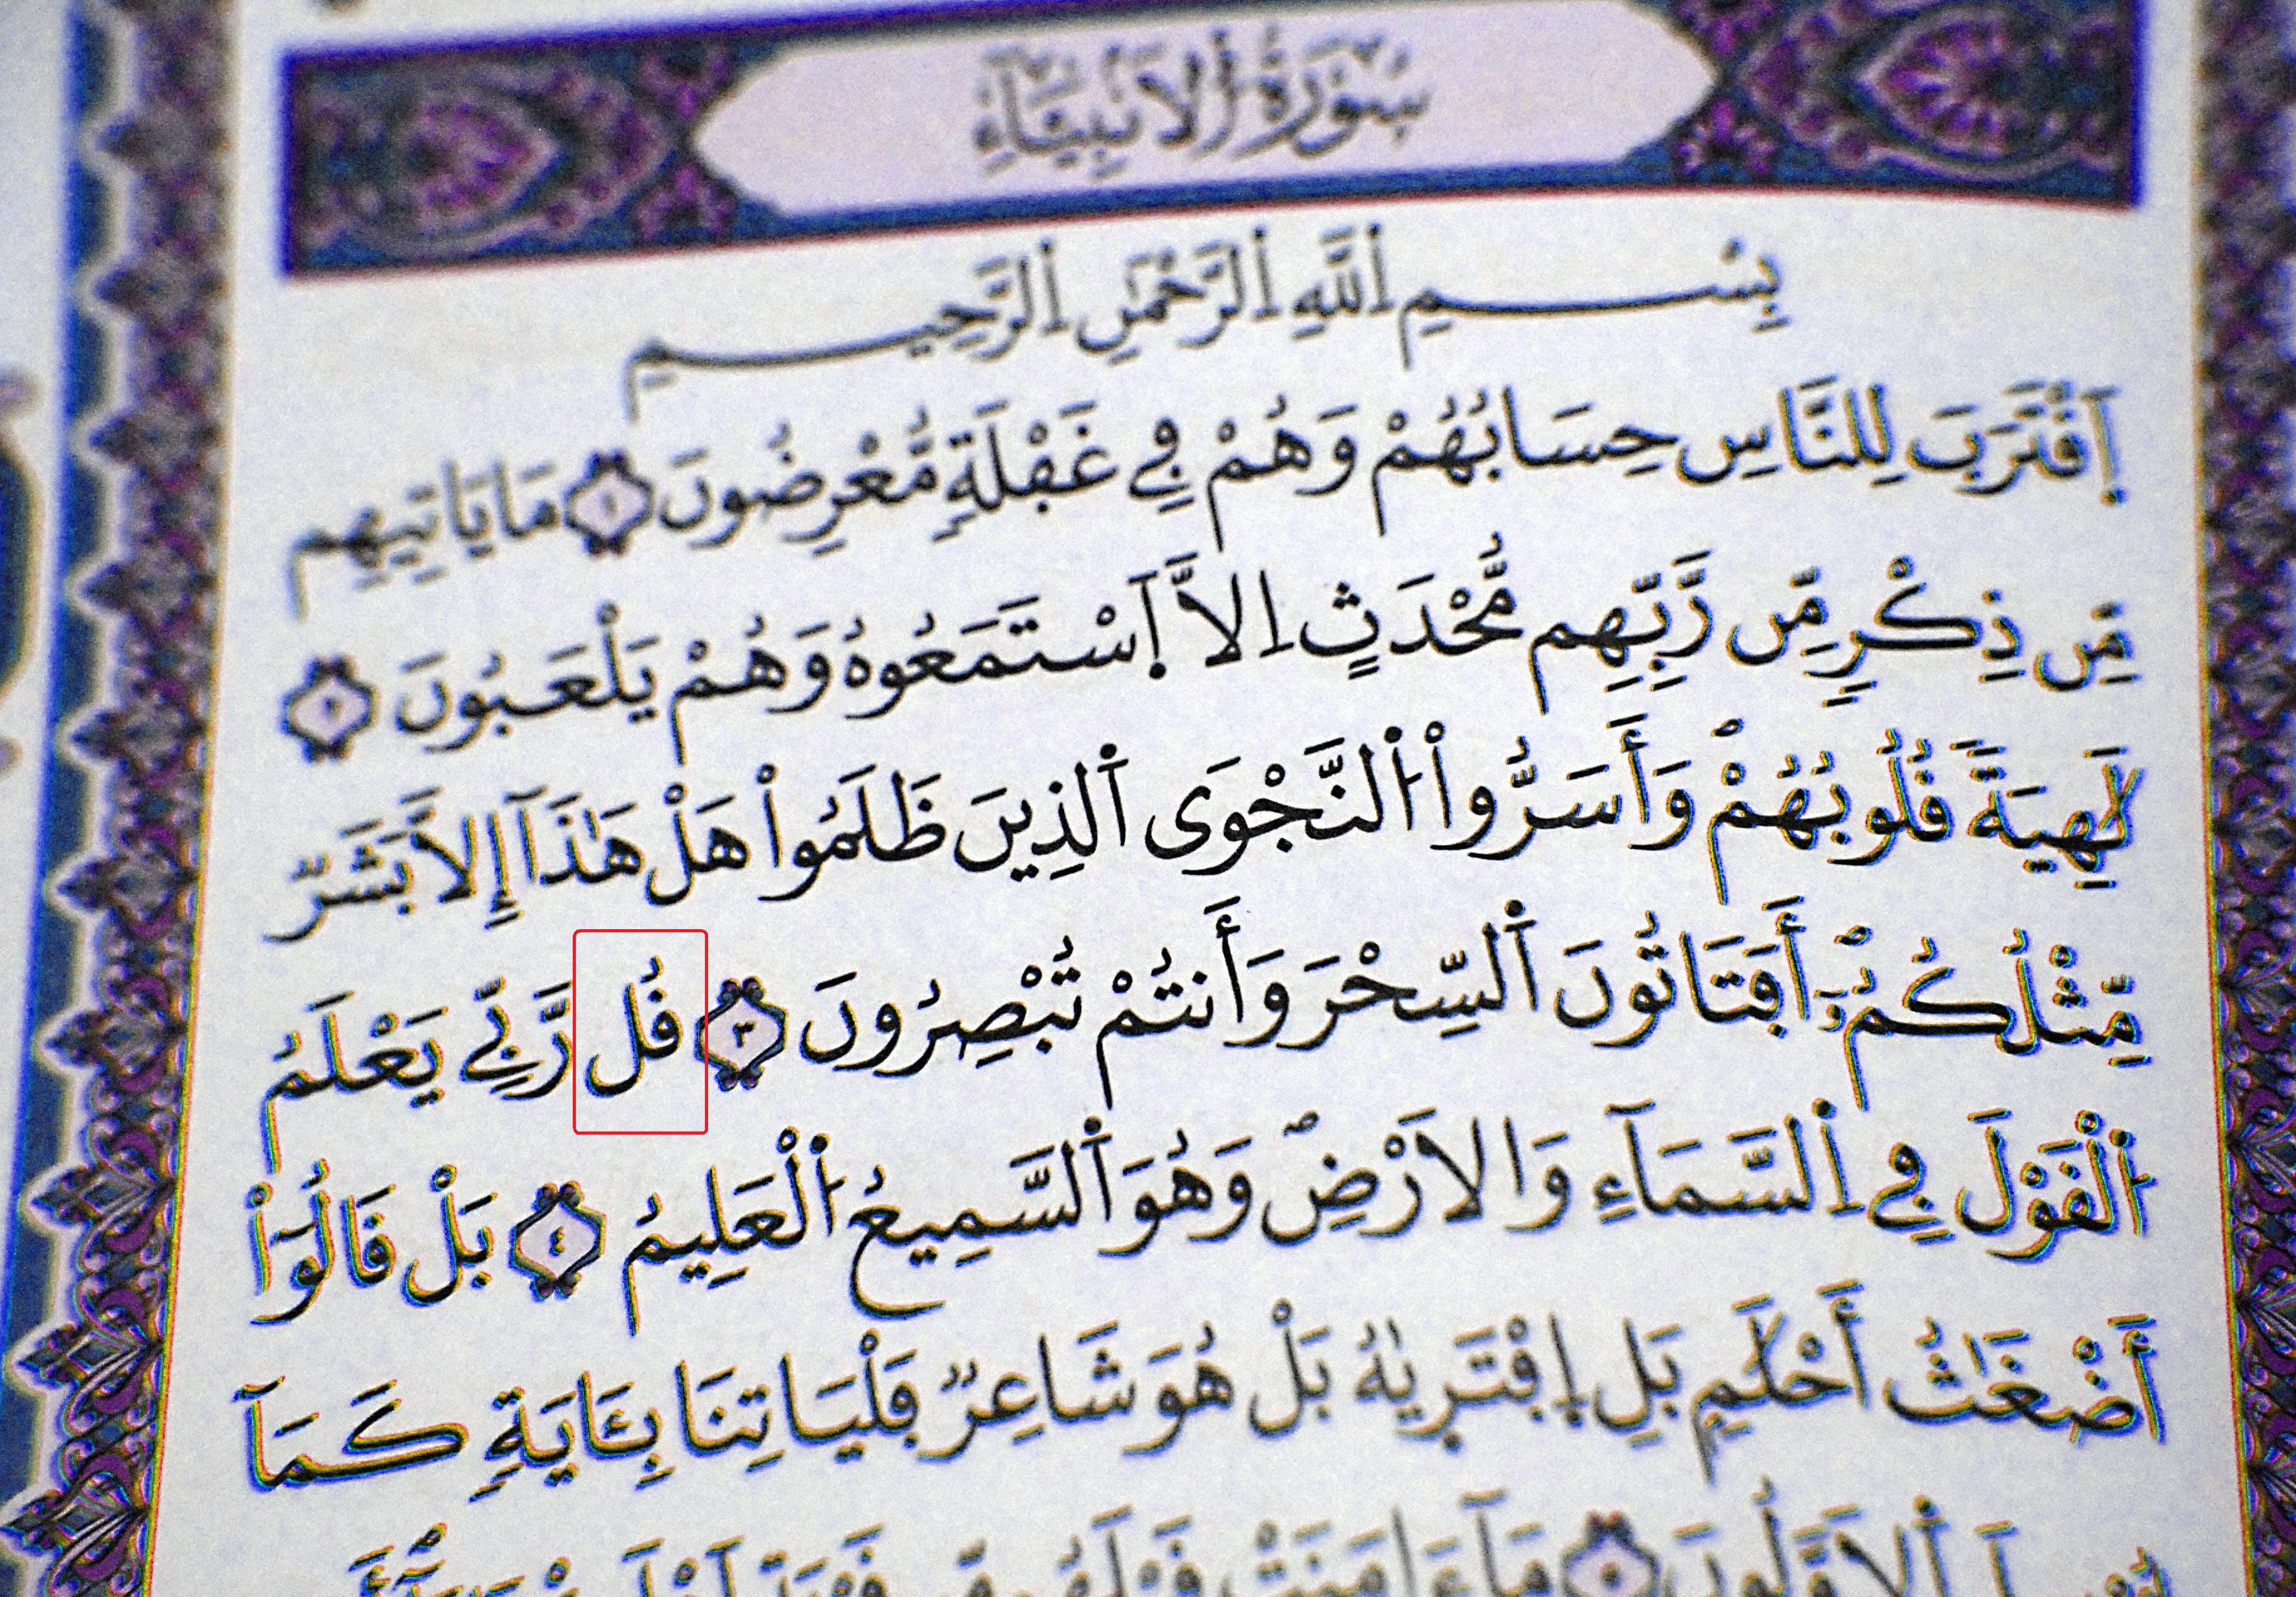 سُورَةُ أَلَانۢبِيَآءِ
بِسْمِ اِ۬للَّهِ اِ۬لرَّحْمَٰنِ اِ۬لرَّحِيمِ
اِ۪قْتَرَبَ لِلنَّاسِ حِسَابُهُمْ وَهُمْ فِي غَفْلَةٍ مُّعْرِضُونَ ١ مَا يَاتِيهِم
مِّن ذِكْرٍ مِّن رَّبِّهِم مُّحْدَثٍ اِلَّا اَ۪سْتَمَعُوهُ وَهُمْ يَلْعَبُونَ ٢
لَٰهِيَةً قُلُوبُهُمْ وَأَسَرُّواْ اُ۬لنَّجْوَى اَ۬لذِينَ ظَلَمُواْ هَلْ هَٰذَآ إِلَّا بَشَرٌ
مِّثْلُكُمُۥٓ أَفَتَاتُونَ اَ۬لسِّحْرَ وَأَنتُمْ تُبْصِرُونَ ٣ قُل رَّبِّي يَعْلَمُ
اُ۬لْقَوْلَ فِي اِ۬لسَّمَآءِ وَالَارْضِ وَهُوَ اَ۬لسَّمِيعُ اُ۬لْعَلِيمُ ٤ بَلْ قَالُوٓاْ
أَضْغَٰثُ أَحْلَٰمِۢ بَلِ اِ۪فْتَرَيٰهُ بَلْ هُوَ شَاعِرٌ فَلْيَاتِنَا بِـَٔايَةٍ كَمَآ
اَ۬لَاوَّلُونَ ٥ مَآ ءَامَنَتْ قَبْلَهُم